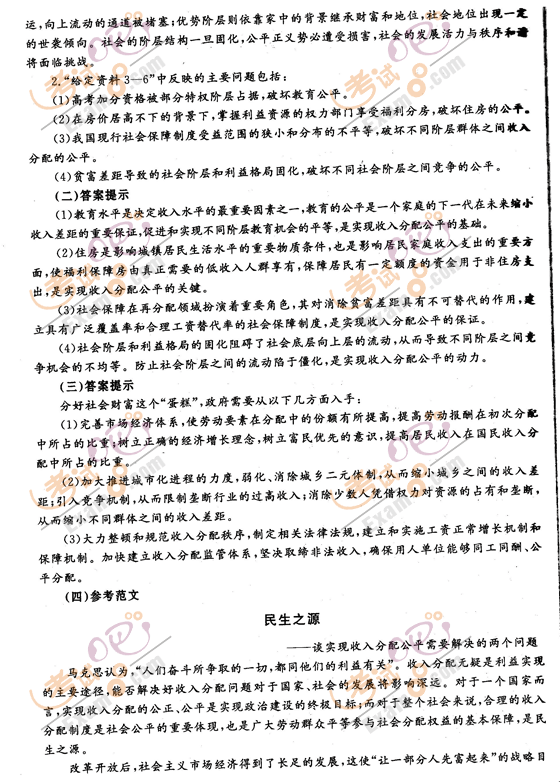 运,向上流动的通道被堵塞;优势阶层则依靠家中的背景继承财富和地位,社会地位出现一定
的世袭倾向。社会的阶层结构一旦固化,公平正义势必遭受损害,社会的发展活力与秩序和谐
将面临挑战。
2.“给定资料3—6”中反映的主要问题包括:
(1)高考加分资格被部分特权阶层占据,破坏教育公平。
(2)在房价居高不下的背景下,掌握利益资源的权力部门享受福利分房,破坏住房的公平。
(3)我国现行社会保障制度受益范围的狭小和分布的不平等,破坏不同阶层群体之间收入
分配的公平。
(4)贫富差距导致的社会阶层和利益格局固化,破坏不同社会阶层之间竞争的公平。
(二)答案提示
(1)教育水平是决定收入水平的最重要因素之一,教育的公平是一个家庭的下一代在未来缩小
收入差距的重要保证,促进和实现不同阶层教育机会的平等,是实现收入分配公平的基础。
(2)住房是影响城镇居民生活水平的重要物质条件,也是影响居民家庭收入支出的重要方
面,使福利保障房由真正需要的低收入人群享有,保障居民有一定额度的资金用于非住房支
出,是实现收入分配公平的关键。
(3)社会保障在再分配领域扮演着重要角色,其对消除贫富差距具有不可替代的作用,建
立具有广泛覆盖率和合理工资替代率的社会保障制度,是实现收入分配公平的保证。
(4)社会阶层和利益格局的固化阻碍了社会底层向上层的流动,从而导致不同阶层之间竞
争机会的不均等。防止社会阶层之间的流动陷于僵化,是实现收入分配公平的动力。
(三)答案提示
分好社会财富这个“蛋糕”,政府需要从以下几方面入手:
(1)完善市场经济体系,使劳动要素在分配中的份额有所提高,提高劳动报酬在初次分配
中所占的比重;树立正确的经济增长理念,树立富民优先的意识,提高居民收入在国民收入分
配中所占的比重。
(2)加大推进城市化进程的力度,弱化、消除城乡二元体制,从而缩小城乡之间的收入差
距;引入竞争机制,从而限制垄断行业的过高收入;消除少数人凭借权力对资源的占有和垄断,
从而缩小不同群体之间的收入差距。
(3)大力整顿和规范收入分配秩序,制定相关法律法规,建立和实施工资正常增长机制和
保障机制。加快建立收入分配监管体系,坚决取缔非法收入,确保用人单位能够同工同酬、公
平分配。
(四)参考范文
民生之源
——谈实现收入分配公平需要解决的两个问题
马克思认为,“人们奋斗所争取的一切,都同他们的利益有关”。收入分配无疑是利益实现
的主要途径,能否解决好收入分配问题对于国家、社会的发展将影响深远。对于一个国家而
言,实现收入分配的公正、公平是实现政治建设的终极目标;而对于整个社会来说,合理的收入
分配制度是社会公平的重要体现,也是广大劳动群众平等参与社会分配权益的基本保障,是民
生之源。
改革开放后,社会主义市场经济得到了长足的发展,这使“让一部分人先富起来”的战略目